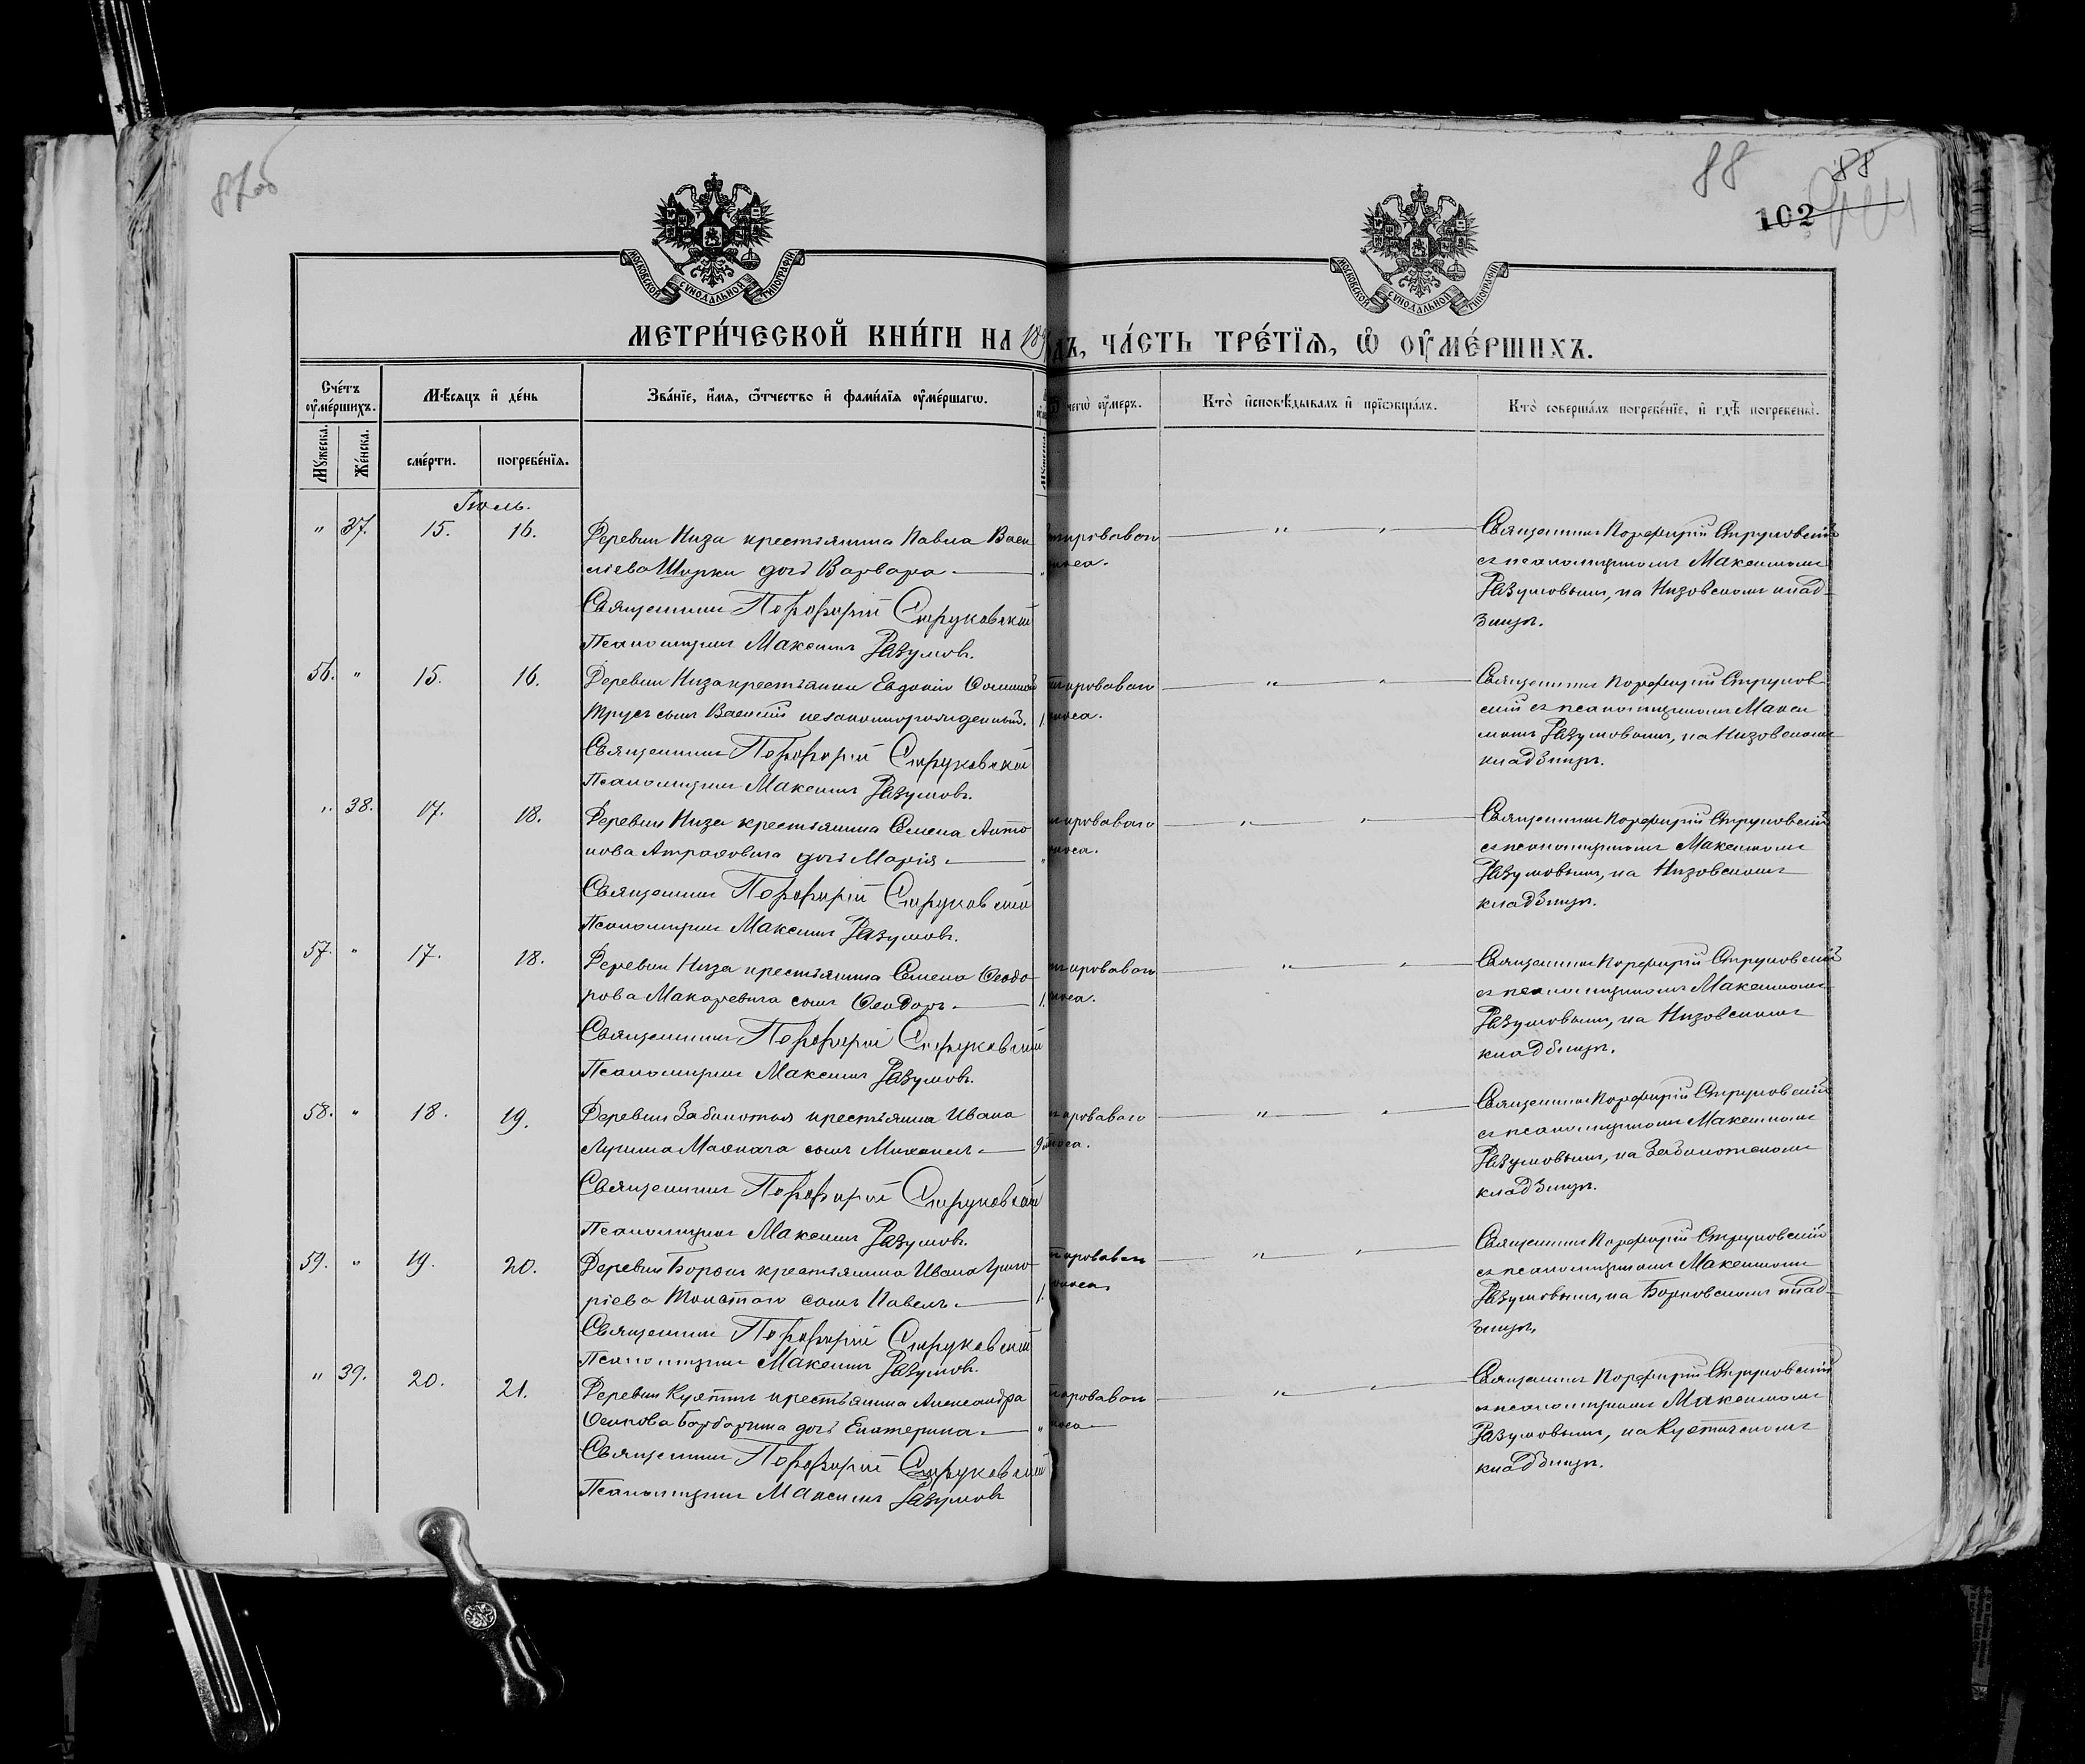 87об
88
88
102
МОСКОВСКОЙ СѴНОДАЛЬНОЙ ТИПОГРАФІИ
МОСКОВСКОЙ СѴНОДАЛЬНОЙ ТИПОГРАФІИ
МЕТРИ́ЧЕСКОЙ КНИ́ГИ НА 189
ДЪ, ЧА́СТЬ ТРЕ́ТЇѦ, Ѡ҆ ОУ҆МЕ́РШИХЪ.
Сче́тъ оу҆ме́ршихъ.
Мѣ́сѧцъ и҆ де́нь
Зва́нїе, и҆́мѧ, ѻ҆́тчество и҆ фами́лїѧ оу҆ме́ршагѡ.
чегѡ̀ оу҆́меръ.
Кто̀ и҆сповѣ́дывалъ и҆ прїѡбща́лъ.
Кто̀ соверша́лъ погребе́нїе, и҆ гдѣ̀ погребены̀.
Мꙋ́жеска.
Же́нска.
сме́рти.
погребе́нїѧ.
Іюль.
" 37. 15. 16. Деревни Низа крестьянина Павла Васи
ліева Шурки дочь Варвара
Священникъ Порфирій Струковскій
Псаломщикъ Максимъ Разумовъ.
Священникъ Порфирій Струковскій
съ псаломщикомъ Максимомъ
Разумовымъ, на Низовскомъ клад-
бищѣ.
56. " 15. 16. Деревни Низа крестьянки Евдокіи
Трусъ сынъ Василій незаконнорожденный. 1.
Священникъ Порфирій Струковскій
Псаломщикъ Максимъ Разумовъ.
Священникъ Порфирій Струков
скій съ псаломщикомъ Макси
момъ Разумовымъ, на Низовскомъ
кладбищѣ.
" 38. 17. 18. Деревни Низа крестьянина Семена Анто
нова дочь Марія
Священникъ Порфирій Струковскій
Псаломщикъ Максимъ Разумовъ.
Священникъ Порфирій Струковскій
съ псаломщикомъ Максимомъ
Разумовымъ, на Низовскомъ
кладбищѣ.
57. " 17. 18. Деревни Низа крестьянина Семена Ѳеодо-
рова Макаревича сынъ Ѳеодоръ 1.
Священникъ Порфирій Струковскій
Псаломщикъ Максимъ Разумовъ.
Священникъ Порфирій Струковскій
съ псаломщикомъ Максимомъ
Разумовымъ, на Низовскомъ
кладбищѣ.
58. " 18. 19. Деревни Заболотья крестьянина Ивана
сынъ Михаилъ
Священникъ Порфирій Струковскій
Псаломщикъ Максимъ Разумовъ.
Священникъ Порфирій Струковскій
съ псаломщикомъ Максимомъ
Разумовымъ, на Заболотскомъ
кладбищѣ.
59. " 19. 20. Деревни Борки крестьянина Ивана Григо
ріева Толстаго сынъ Павелъ 1.
Священникъ Порфирій Струковскій
Псаломщикъ Максимъ Разумовъ.
Священникъ Порфирій Струковскій
съ псаломщикомъ Максимомъ
Разумовымъ, на Борковскомъ клад-
бищѣ.
" 39. 20. 21. Деревни Куятичъ крестьянина Александра
Осипова дочь Екатерина
Священникъ Порфирій Струковскій
Псаломщикъ Максимъ Разумовъ
Священникъ Порфирій Струковскій
съ псаломщикомъ Максимомъ
Разумовымъ, на
кладбищѣ.